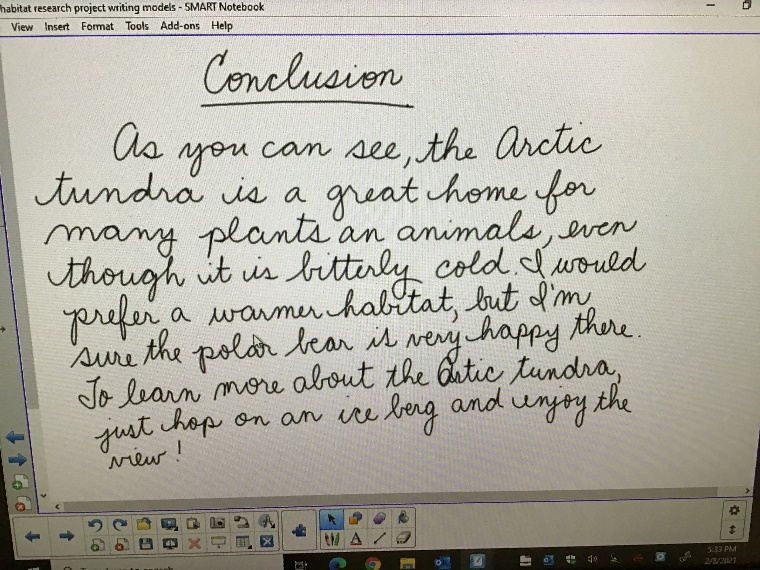 habitat research project writing models - SMART Notebook
View Insert Format Tools Add-ons Help
Conclusion
As you can see, the Arctic
tundra is a great home for
many plants an animals, even
though it is bitterly cold. I would
prefer a warmer habitat, but I'm
sure the polar bear is very happy there.
To learn more about the Artic tundra,
just hop on an ice berg and enjoy the
view!
5:33 PM